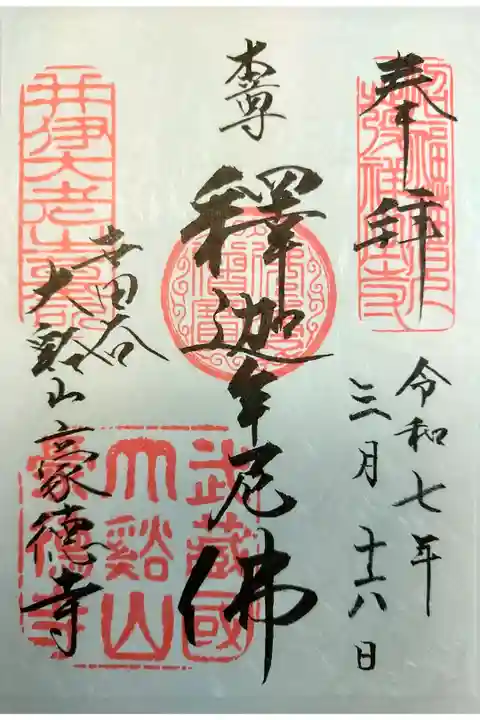 奉拝
令和七年
三月十六日
本尊
釋迦牟尼佛
世田谷
大谿山豪德寺
井伊大老之墓所
武藏國
大谿山
豪德寺